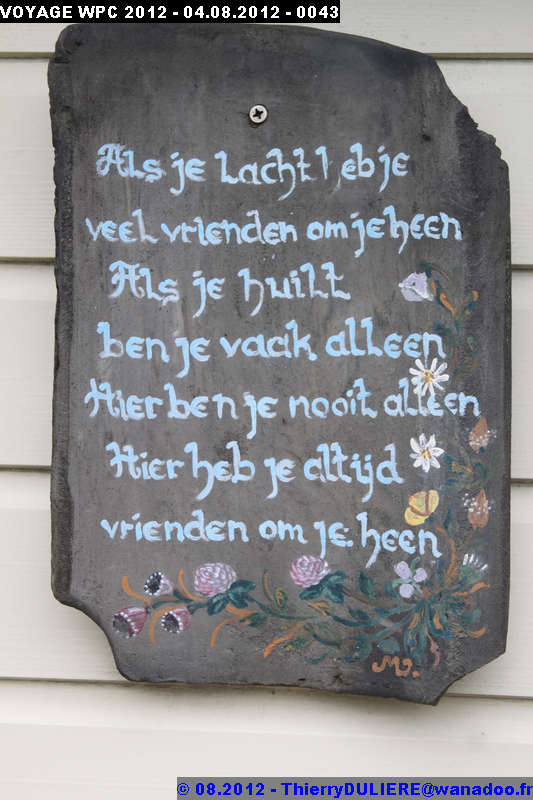 VOYAGE WPC 2012 - 04.08.2012 - 0043
Als je lacht heb je
veel vrienden om je heen
Als je huilt
ben je vaak alleen
Hier ben je nooit alleen
Hier heb je altijd
vrienden om je heen
MJ.
© 08.2012 - ThierryDULIERE@wanadoo.fr